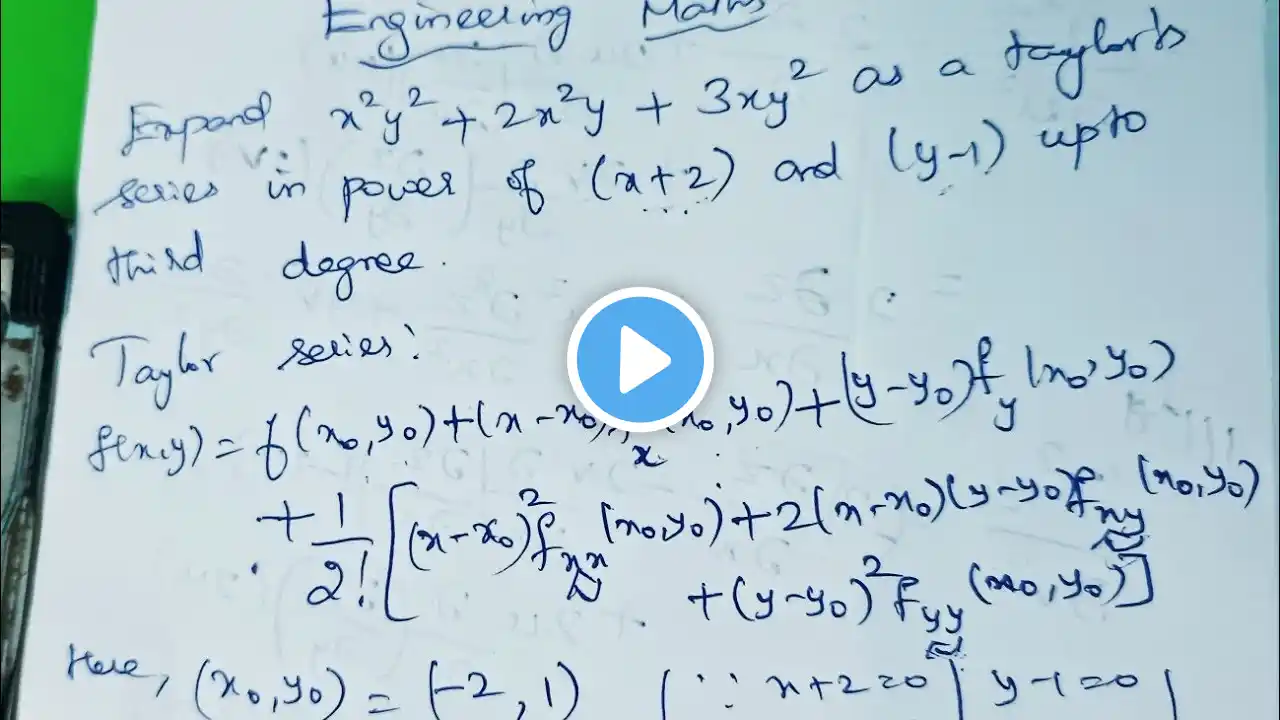 Engineering Maths
Expand x²y² + 2x²y + 3xy² as a taylor's
series in power of (x+2) and (y-1) upto
third degree.
Taylor series:
f(x,y) = f(x₀,y₀)+(x-x₀) x(x₀,y₀)+(y-y₀)f_y(x₀,y₀)
+ 1/2! [(x-x₀)²f_xx(x₀,y₀)+2(x-x₀)(y-y₀)f_xy(x₀,y₀)
+(y-y₀)²f_yy(x₀,y₀)]
Here, (x₀,y₀) = (-2,1) | ∵ x+2=0 | y-1=0 |